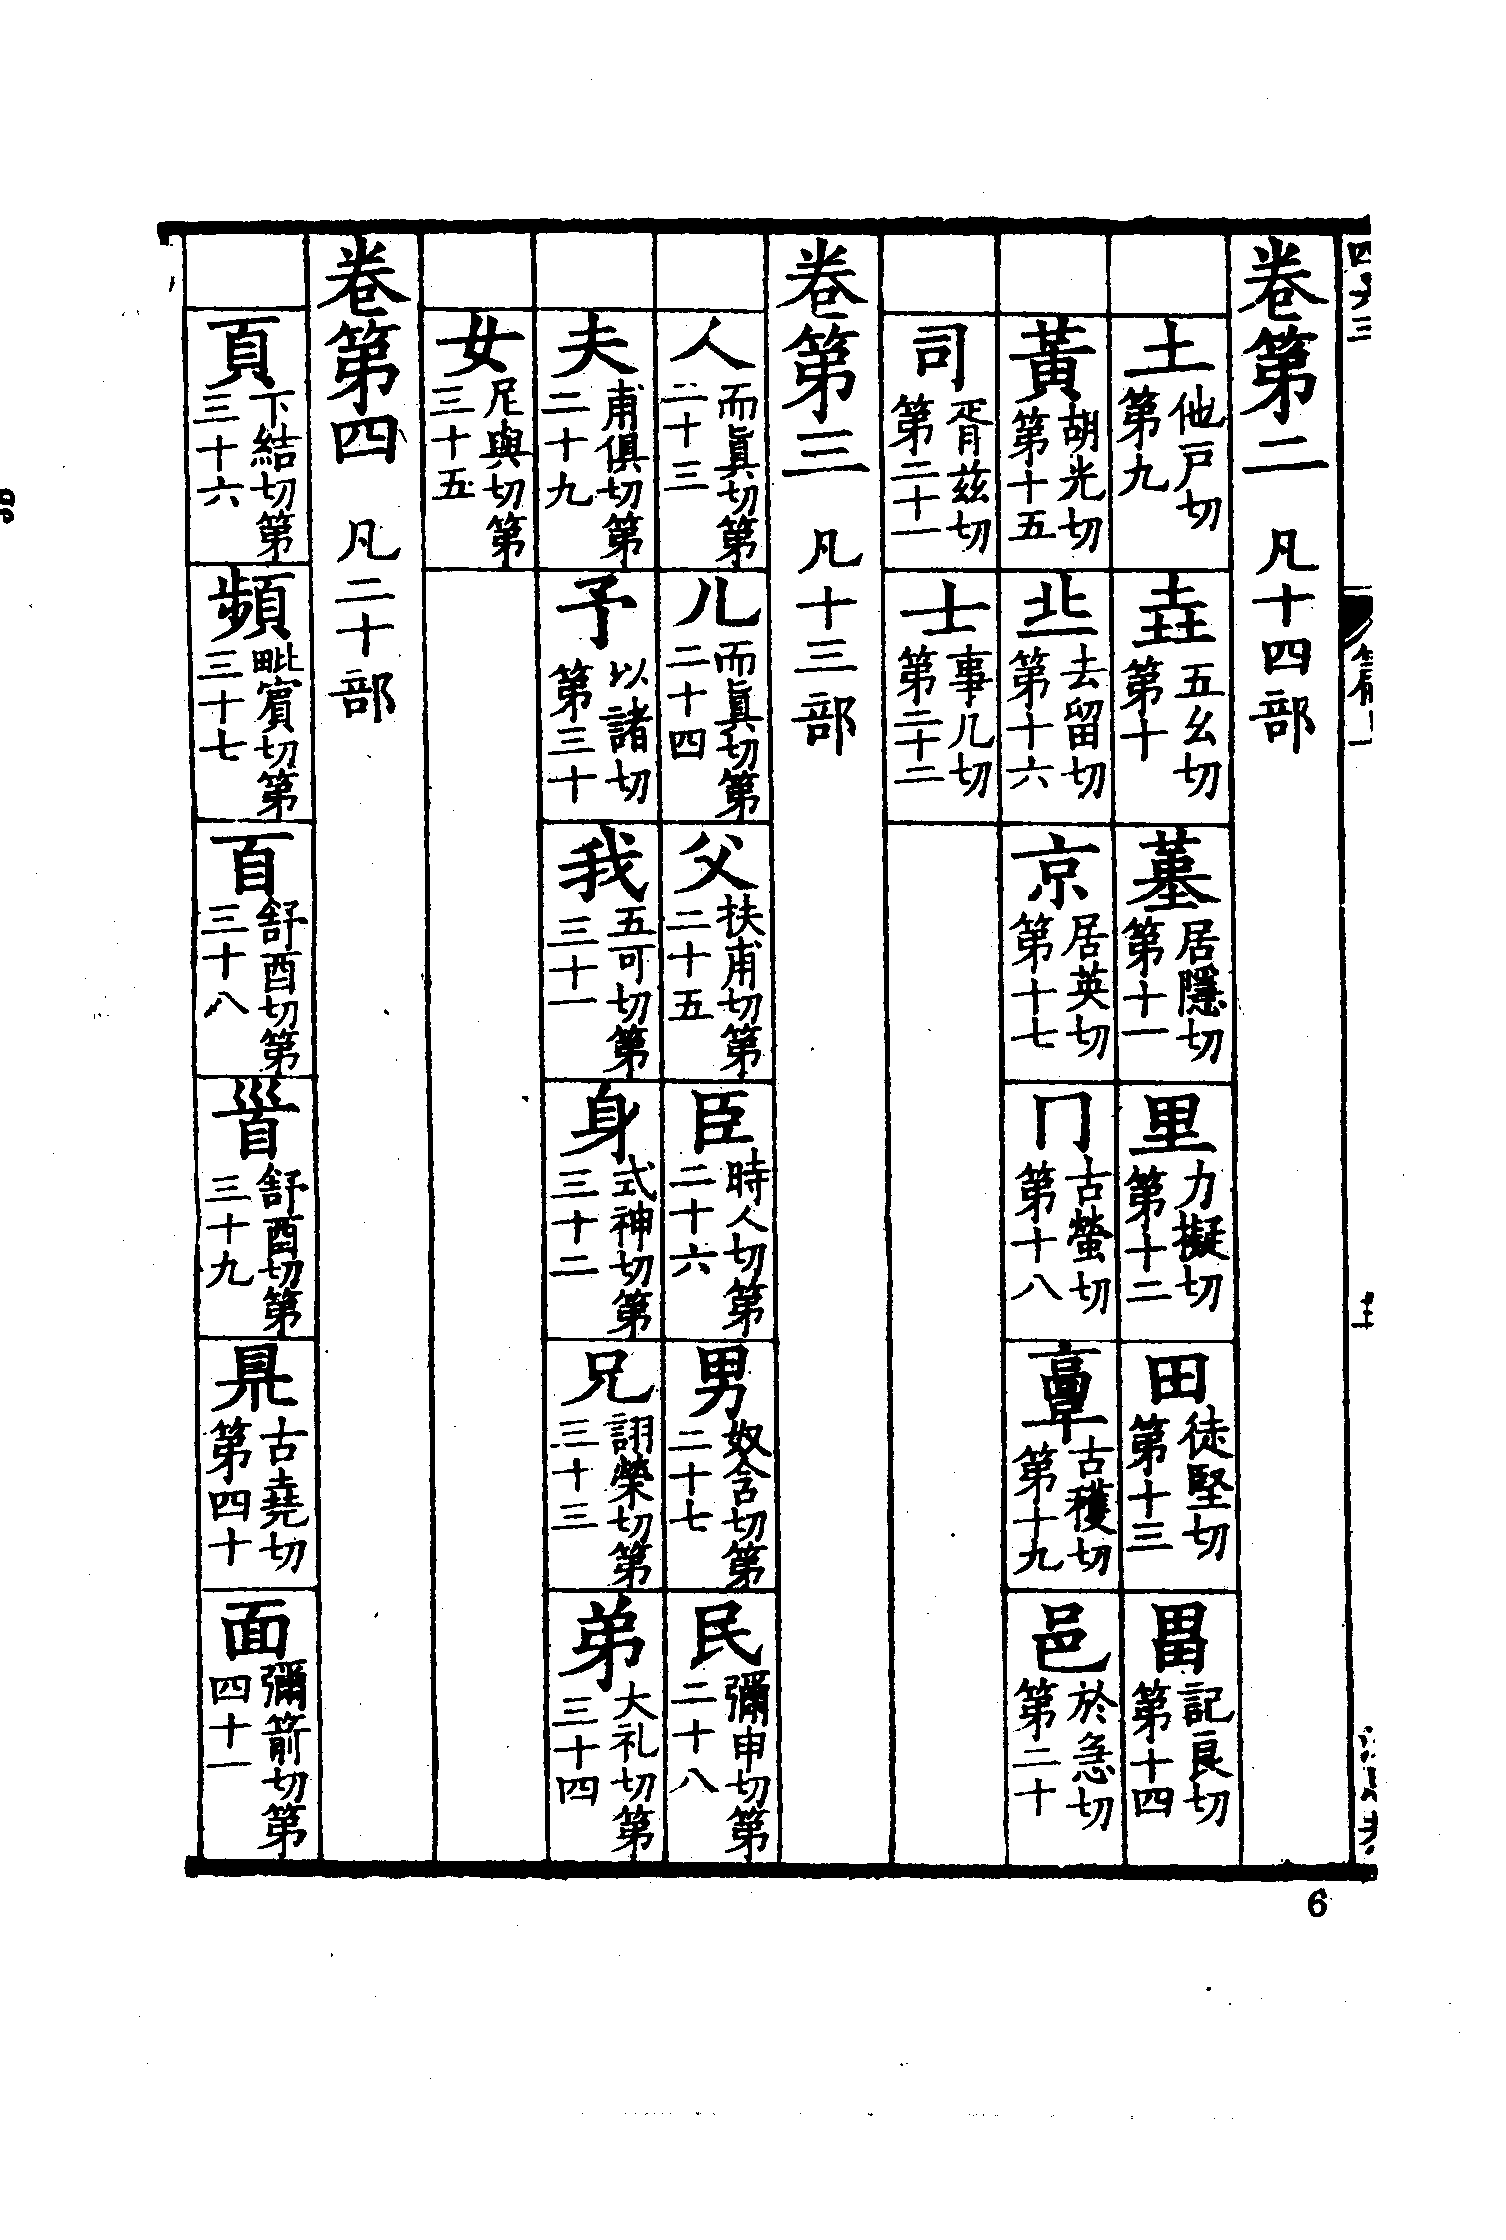 卷第二 凡十四部
土 他戶切第九 垚 五幺切第十 堇 居隱切第十一 里 力擬切第十二 田 徒堅切第十三 畕 記良切第十四
黃 胡光切第十五 丠 去留切第十六 京 居英切第十七 冂 古螢切第十八 𩫏 古穫切第十九 邑 於急切第二十
司 胥茲切第二十一 士 事几切第二十二
卷第三 凡十三部
人 而眞切第二十三 儿 而眞切第二十四 父 扶甫切第二十五 臣 時人切第二十六 男 奴含切第二十七 民 彌申切第二十八
夫 甫俱切第二十九 予 以諸切第三十 我 五可切第三十一 身 式神切第三十二 兄 詡榮切第三十三 弟 大礼切第三十四
女 尼與切第三十五
卷第四 凡二十部
頁 下結切第三十六 頻 毗賓切第三十七 𦣻 舒酉切第三十八 𩠐 舒酉切第三十九 県 古堯切第四十 面 彌箭切第四十一
6